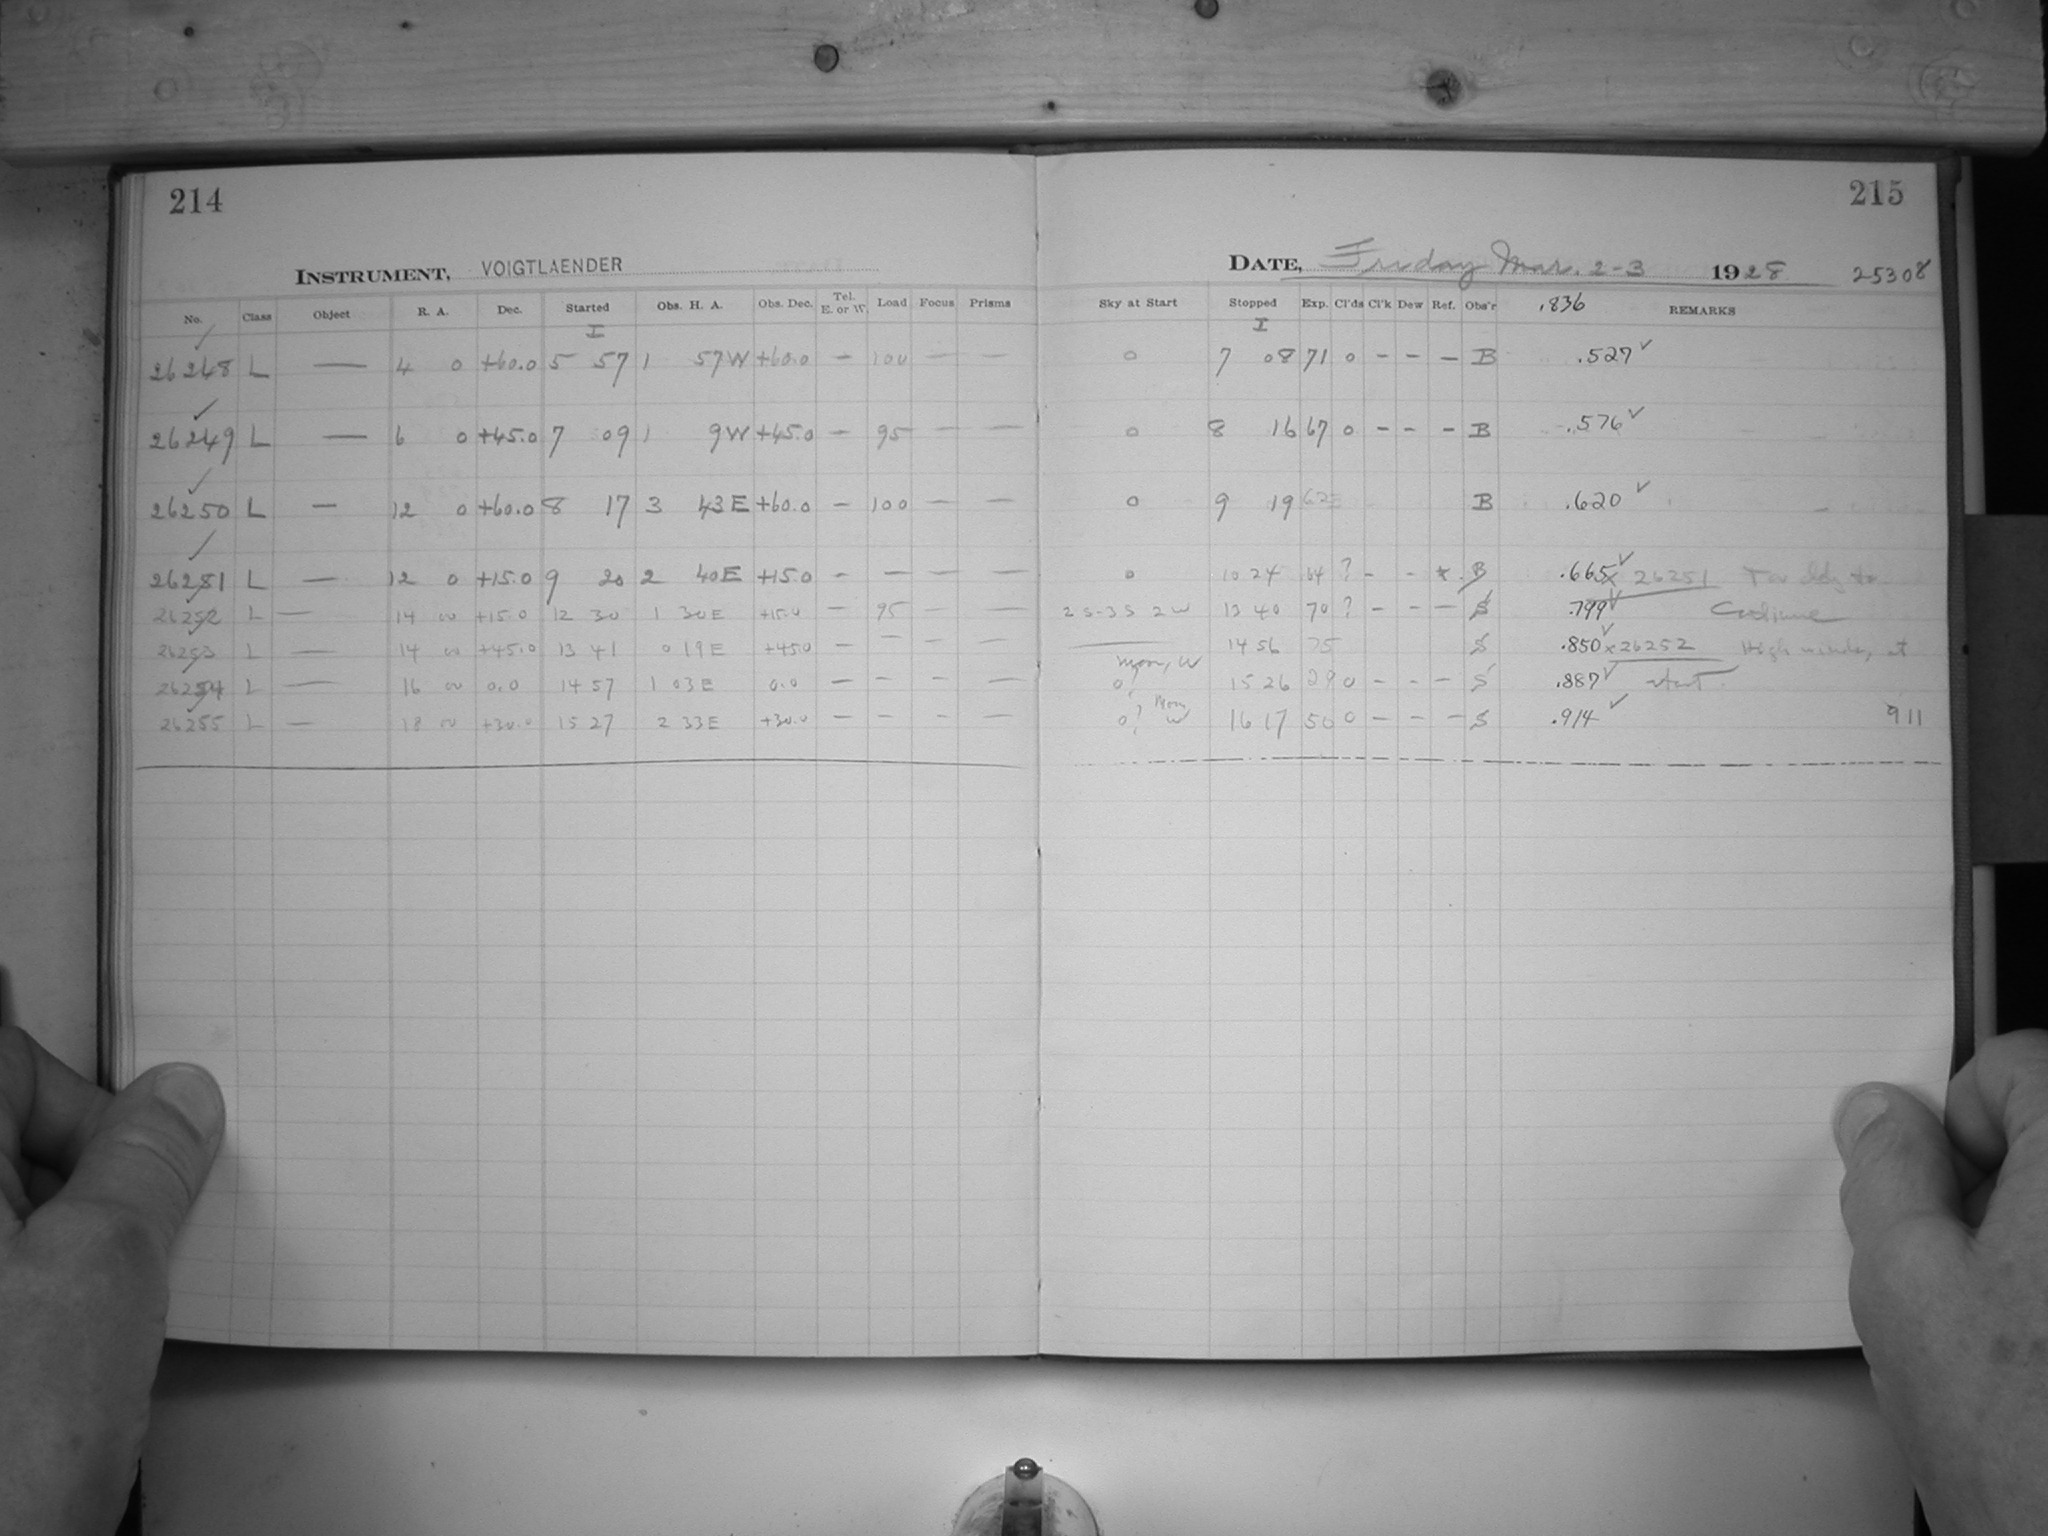 214
215
INSTRUMENT, VOIGTLAENDER
DATE, Friday Mar. 2-3 1928 25308
No. Class Object R. A. Dec. Started Obs. H. A. Obs. Dec. Tel. E. or W. Load Focus Prisms Sky at Start Stopped Exp. Cl'ds Cl'k Dew Ref. Obs'r .836 REMARKS
I I
26248 L — 4 0 +60.0 5 57 1 57W +60.0 — 100 — — 0 7 08 71 0 — — — B .527 ✓
26249 L — 6 0 +45.0 7 09 1 9W +45.0 — 95 — — 0 8 16 67 0 — — — B .576 ✓
26250 L — 12 0 +60.0 8 17 3 43E +60.0 — 100 — — 0 9 19 62 B .620 ✓
26251 L — 12 0 +15.0 9 20 2 40E +15.0 — — — — 0 10 24 64 ? — — * B .665 x 26251 Too to
26252 L — 14 00 +15.0 12 30 1 30E +15.0 — 95 — — 2S-3S 2W 13 40 70 ? — — — S .799 ✓
26253 L — 14 00 +45.0 13 41 0 19E +45.0 — — — — — 14 56 75 S .850 x 26252 High at
26254 L — 16 00 0.0 14 57 1 03E 0.0 — — — — 0, Moon, W 15 26 29 0 — — — S .887 ✓ start.
26255 L — 18 00 +30.0 15 27 2 33E +30.0 — — — — 0, Moon W 16 17 50 0 — — — S .914 ✓ 911